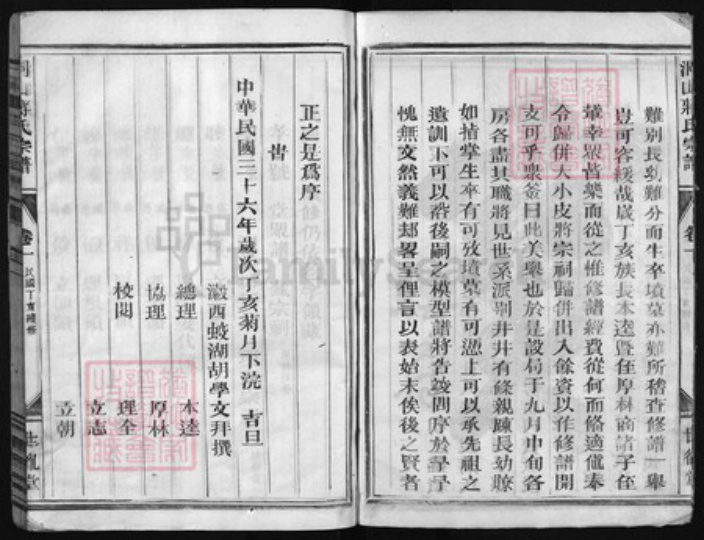 難別長幼難分而生卒墳墓亦難所稽查修譜一舉
豈可容緩哉歲丁亥族長本逵暨侄厚林商諸子侄
輩幸眾皆樂而從之惟修譜經費從何而俻適值奉
令歸併大小皮將宗祠歸併出入餘資以作修譜開
支可乎衆僉曰此美舉也於是設局于九月中旬各
房各盡其職將見世系派别井井有條親踈長幼瞭
如指掌生卒有可攷墳墓有可憑上可以承先祖之
遺訓下可以啓後嗣之模型譜將告竣問序於予予
愧無文然義難却畧呈俚言以表始末俟後之賢者
正之是爲序
旹
中華民國三十六年歲次丁亥菊月下浣 吉旦
灊西蛟湖胡學文拜撰
總理 本逵
協理 厚林
校閱 理全
立志
立朝
洞山蔣氏宗譜 卷一 民國丁亥續修 世 堂
洞山蔣氏宗譜 卷一 世 堂
FamilySearch